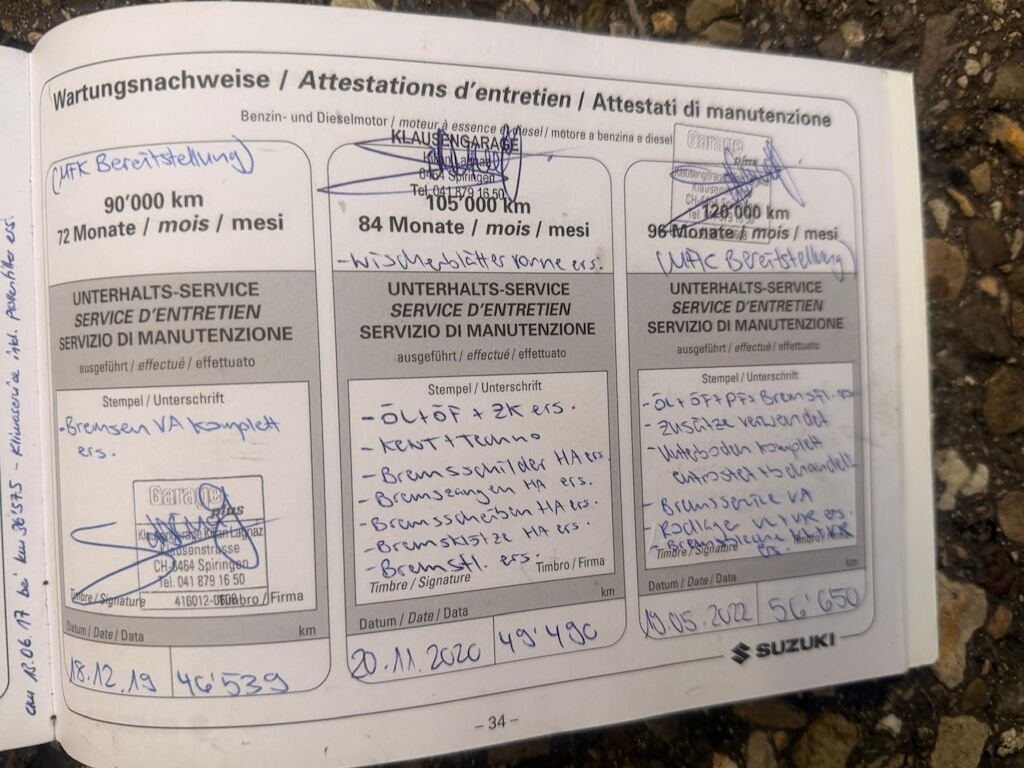 am 18.06.17 bei km 36'575 - Klimaservice inkl. Pollenfilter ers.
Wartungsnachweise / Attestations d'entretien / Attestati di manutenzione
Benzin- und Dieselmotor / moteur à essence et diesel / motore a benzina e diesel
(MFK Bereitstellung)
90'000 km
72 Monate / mois / mesi
UNTERHALTS-SERVICE
SERVICE D'ENTRETIEN
SERVIZIO DI MANUTENZIONE
ausgeführt / effectué / effettuato
Stempel / Unterschrift
- Bremsen VA komplett
ers.
Garage
plus
Klausengarage Kilian
Klausenstrasse
CH-6464 Spiringen
Tel. 041 879 16 50
416012-0608
Timbre / Signature
Timbro / Firma
Datum / Date / Data
km
18.12.19
46'539
KLAUSENGARAGE
Kilian
8464 Spiringen
Tel. 041 879 16 50
105'000 km
84 Monate / mois / mesi
- Wischerblätter vorne ers.
UNTERHALTS-SERVICE
SERVICE D'ENTRETIEN
SERVIZIO DI MANUTENZIONE
ausgeführt / effectué / effettuato
Stempel / Unterschrift
- ÖL + ÖF + ZK ers.
- KENT + Techno
- Bremsschilder HA ers.
- Bremszangen HA ers.
- Bremsscheiben HA ers.
- Bremsklötze HA ers.
- Bremsfl. ers.
Timbre / Signature
Timbro / Firma
Datum / Date / Data
km
20.11.2020
49'490
Garage
plus
CH-6464
120'000 km
96 Monate / mois / mesi
(MFK Bereitstellung)
UNTERHALTS-SERVICE
SERVICE D'ENTRETIEN
SERVIZIO DI MANUTENZIONE
ausgeführt / effectué / effettuato
Stempel / Unterschrift
- ÖL + ÖF + PF + Bremsfl. ers.
- Zusätze verwendet
- Unterboden komplett
entrostet + behandelt
- Bremsservice VA
- Radlager ers.
ers.
Timbre / Signature
Datum / Date / Data
km
19.05.2022
56'650
SUZUKI
- 34 -